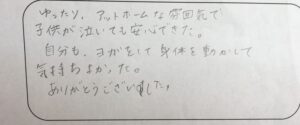 ゆったり、アットホームな雰囲気で
子供が泣いても安心できた。
自分も、ヨガをして身体を動かして
気持ちよかった。
ありがとうございました。